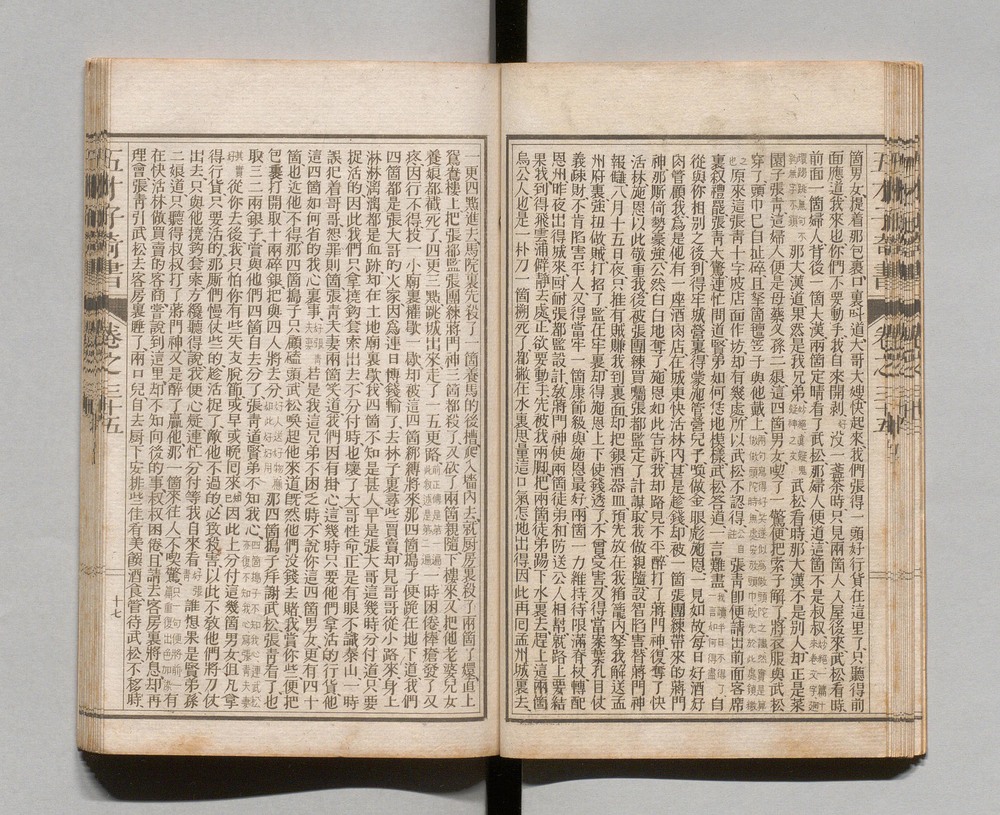 箇男女提着那包裹口裏叫道大哥大嫂快起來我們張得一頭好行貨在這里了只聽得前
面應道我來也你們不要動手我自來開剥沒一盞茶時只見兩箇人入屋後來武松看時
前面一箇婦人背後一箇大漢兩箇定睛看了武松那婦人便道這箇不是叔叔
那大漢道果然是我兄弟武松看時那大漢不是別人却正是菜
園子張青這婦人便是母藥叉孫二娘這四箇男女喫了一驚便把索子解了將衣服與武松
穿了頭巾已自扯碎且拏箇氊笠子與他戴上
原來這張青十字坡店面作坊却有幾處所以武松不認得張青卽便請出前面客席
裏叙禮罷張青大驚連忙問道賢弟如何恁地模樣武松答道一言難盡自
從與你相別之後到得牢城營裏得蒙施管營兒子喚做金眼彪施恩一見如故每日好酒好
肉管顧我為是他有一座酒肉店在城東快活林內甚是趁錢却被一箇張團練帶來的蔣門
神那厮倚勢豪强公然白白地奪了施恩如此告訴我却路見不平醉打了蔣門神復奪了快
活林施恩以此敬重我後被張團練買囑張都監定了計謀取我做親隨設智陷害替蔣門神
報讎八月十五日夜只推有賊賺我到裏面却把銀酒器皿預先放在我箱籠內拏我解送孟
州府裏强扭做賊打招了監在牢裏却得施恩上下使錢透了不曾受害又得當案葉孔目仗
義疎財不肯陷害平人又得當牢一箇康節級與施恩最好兩箇一力維持待限滿脊杖轉配
恩州昨夜出得城來叵耐張都監設計教蔣門神使兩箇徒弟和防送公人相幫就路上要結
果我到得飛雲浦僻靜去處正欲要動手先被我兩脚把兩箇徒弟踢下水裏去趕上這兩箇
鳥公人也是一朴刀一箇搠死了都撇在水裏思量這口氣怎地出得因此再回孟州城裏去
一更四點進去馬院裏先殺了一箇養馬的後槽爬入墻內去就厨房裏殺了兩箇了鬟直上
鴛鴦樓上把張都監張團練蔣門神三箇都殺了又砍了兩箇親隨下樓來又把他老婆兒女
養娘都戳死了四更三點跳城出來走了一五更路一時困倦棒瘡發了又
疼因行不得投一小廟裏權歇一歇却被這四箇綁縛將來那四箇搗子便跪在地下道我們
四箇都是張大哥的火家因為連日博錢輸了去林子裏尋些買賣却見哥哥從小路來身上
淋淋漓漓都是血跡却在土地廟裏歇我四箇不知是甚人早是張大哥這幾時分付道只要
捉活的因此我們只拿撓鈎套索出去不分付時也壞了大哥性命正是有眼不識泰山一時
誤犯着哥哥恕罪則箇張青夫妻兩箇笑道我們因有掛心這幾時只要他們拿活的行貨他
這四箇如何省的我心裏事若是我這兄弟不困乏時不說你這四箇男女更有四十
箇也近他不得那四箇搗子只顧磕頭武松喚起他來道旣然他們沒錢去賭我賞你些便把
包裹打開取十兩碎銀把與四人將去分那四箇搗子拜謝武松張青看了也
取三二兩銀子賞與他們四箇自去分了張青道賢弟不知我心
從你去後我只怕你有些失支脫節或早或晚回來因此上分付這幾箇男女但凡拿
得行貨只要捉活的那厮們慢仗些的趁活捉了敵他不過的必致殺害以此不敎他們將刀仗
出去只與他撓鈎套索方纔聽得說我便心疑連忙分付等我自來看誰想果是賢弟孫
二娘道只聽得叔叔打了蔣門神又是醉了贏他那一箇來往人不喫驚有
在快活林做買賣的客商常說到這里却不知向後的事叔叔困倦且請去客房裏將息却再
理會張青引武松去客房裏睡了兩口兒自去厨下安排些佳肴美饌酒食管待武松不移時
五才子奇書
卷之三十五
十七